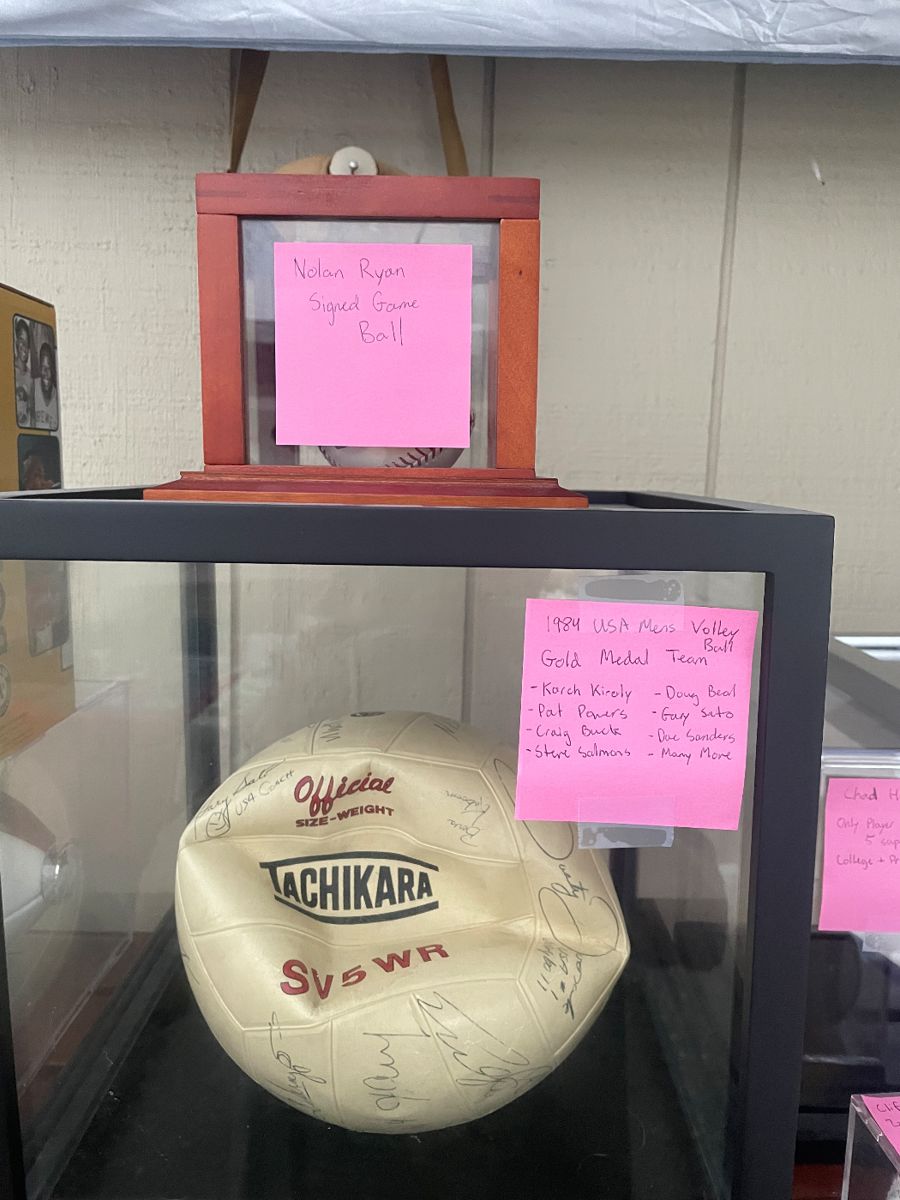 Nolan Ryan
Signed Game
Ball
1984 USA Mens Volley
Ball
Gold Medal Team
- Karch Kiraly
- Pat Powers
- Craig Buck
- Steve Salmons
- Doug Beal
- Gary Sato
- Dave Sanders
- Many More
USA COACH
Official
SIZE-WEIGHT
TACHIKARA
SV5WR
Chad H
Only Player
5
College + Pr